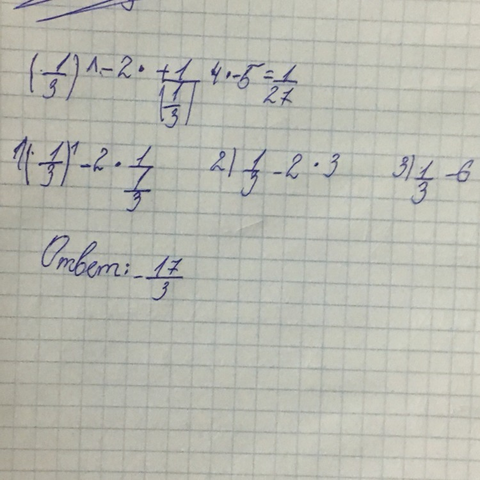 (-1/3)^1 - 2 · +1/(1/3) 4·-5 = 1/27
1) (-1/3)^1 - 2 · 1/(1/3) 2) 1/3 - 2 · 3 3) 1/3 - 6
Ответ: -17/3